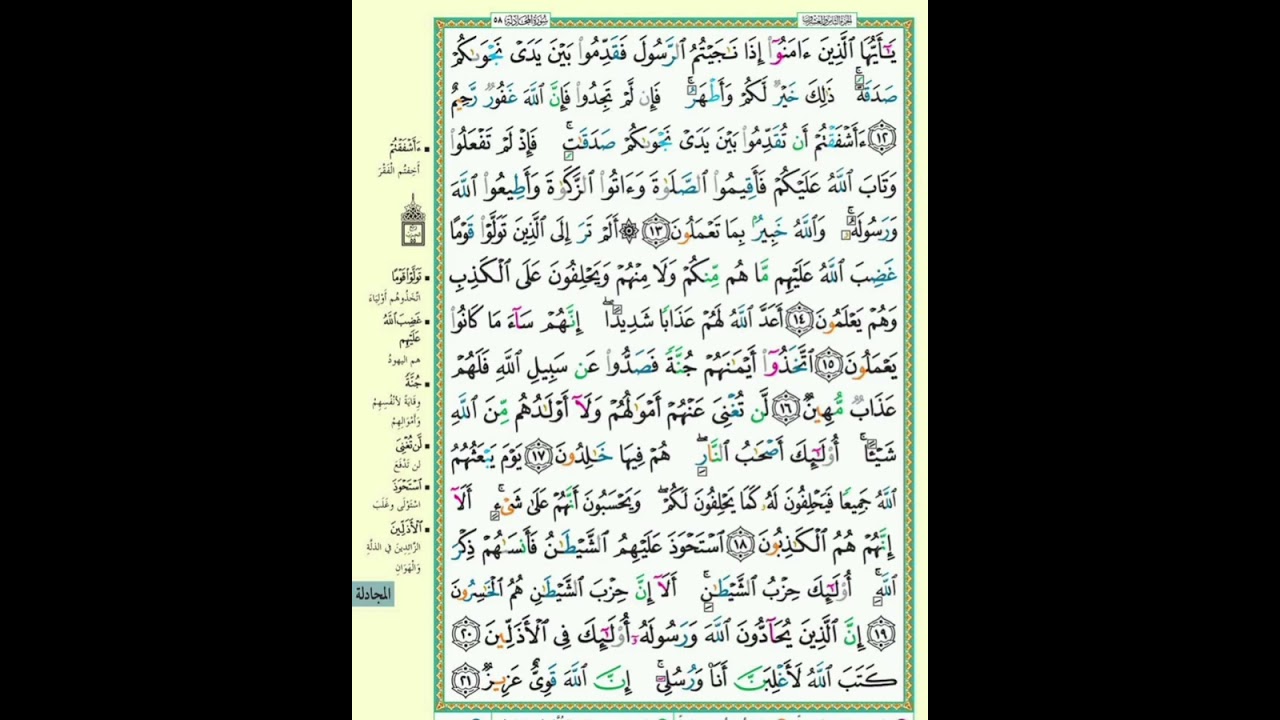 سُورَةُ المُجَادلة ٥٨
الجزء الثامن والعشرون
يَٰٓأَيُّهَا ٱلَّذِينَ ءَامَنُوٓا۟ إِذَا نَٰجَيْتُمُ ٱلرَّسُولَ فَقَدِّمُوا۟ بَيْنَ يَدَىْ نَجْوَىٰكُمْ
صَدَقَةً ۚ ذَٰلِكَ خَيْرٌ لَّكُمْ وَأَطْهَرُ ۚ فَإِن لَّمْ تَجِدُوا۟ فَإِنَّ ٱللَّهَ غَفُورٌ رَّحِيمٌ
١٢ ءَأَشْفَقْتُمْ أَن تُقَدِّمُوا۟ بَيْنَ يَدَىْ نَجْوَىٰكُمْ صَدَقَٰتٍ ۚ فَإِذْ لَمْ تَفْعَلُوا۟
وَتَابَ ٱللَّهُ عَلَيْكُمْ فَأَقِيمُوا۟ ٱلصَّلَوٰةَ وَءَاتُوا۟ ٱلزَّكَوٰةَ وَأَطِيعُوا۟ ٱللَّهَ
وَرَسُولَهُۥ ۚ وَٱللَّهُ خَبِيرٌۢ بِمَا تَعْمَلُونَ ١٣ ۞ أَلَمْ تَرَ إِلَى ٱلَّذِينَ تَوَلَّوْا۟ قَوْمًا
غَضِبَ ٱللَّهُ عَلَيْهِم مَّا هُم مِّنكُمْ وَلَا مِنْهُمْ وَيَحْلِفُونَ عَلَى ٱلْكَذِبِ
وَهُمْ يَعْلَمُونَ ١٤ أَعَدَّ ٱللَّهُ لَهُمْ عَذَابًا شَدِيدًا ۖ إِنَّهُمْ سَآءَ مَا كَانُوا۟
يَعْمَلُونَ ١٥ ٱتَّخَذُوٓا۟ أَيْمَٰنَهُمْ جُنَّةً فَصَدُّوا۟ عَن سَبِيلِ ٱللَّهِ فَلَهُمْ
عَذَابٌ مُّهِينٌ ١٦ لَّن تُغْنِىَ عَنْهُمْ أَمْوَٰلُهُمْ وَلَآ أَوْلَٰدُهُم مِّنَ ٱللَّهِ
شَيْـًٔا ۚ أُو۟لَٰٓئِكَ أَصْحَٰبُ ٱلنَّارِ ۖ هُمْ فِيهَا خَٰلِدُونَ ١٧ يَوْمَ يَبْعَثُهُمُ
ٱللَّهُ جَمِيعًا فَيَحْلِفُونَ لَهُۥ كَمَا يَحْلِفُونَ لَكُمْ ۖ وَيَحْسَبُونَ أَنَّهُمْ عَلَىٰ شَىْءٍ ۚ أَلَآ
إِنَّهُمْ هُمُ ٱلْكَٰذِبُونَ ١٨ ٱسْتَحْوَذَ عَلَيْهِمُ ٱلشَّيْطَٰنُ فَأَنسَىٰهُمْ ذِكْرَ
ٱللَّهِ ۚ أُو۟لَٰٓئِكَ حِزْبُ ٱلشَّيْطَٰنِ ۚ أَلَآ إِنَّ حِزْبَ ٱلشَّيْطَٰنِ هُمُ ٱلْخَٰسِرُونَ
١٩ إِنَّ ٱلَّذِينَ يُحَآدُّونَ ٱللَّهَ وَرَسُولَهُۥٓ أُو۟لَٰٓئِكَ فِى ٱلْأَذَلِّينَ ٢٠
كَتَبَ ٱللَّهُ لَأَغْلِبَنَّ أَنَا۠ وَرُسُلِىٓ ۚ إِنَّ ٱللَّهَ قَوِىٌّ عَزِيزٌ ٢١
ءَأَشْفَقْتُمْ
أَخِفْتُم الْفَقْرَ
تَوَلَّوْا۟ قَوْمًا
اتَّخَذُوهُم أَوْلِيَاءَ
غَضِبَ ٱللَّهُ
عَلَيْهِم
هم اليهودُ
جُنَّةً
وِقَايَةً لأَنْفُسِهِمْ
وَأَمْوَالِهِمْ
لَّن تُغْنِىَ
لن تَدْفَعَ
ٱسْتَحْوَذَ
اسْتَوْلَى وغَلَبَ
ٱلْأَذَلِّينَ
الزَّائِدِينَ فِي الذلَّةِ
وَالْهَوَانِ
المجادلة